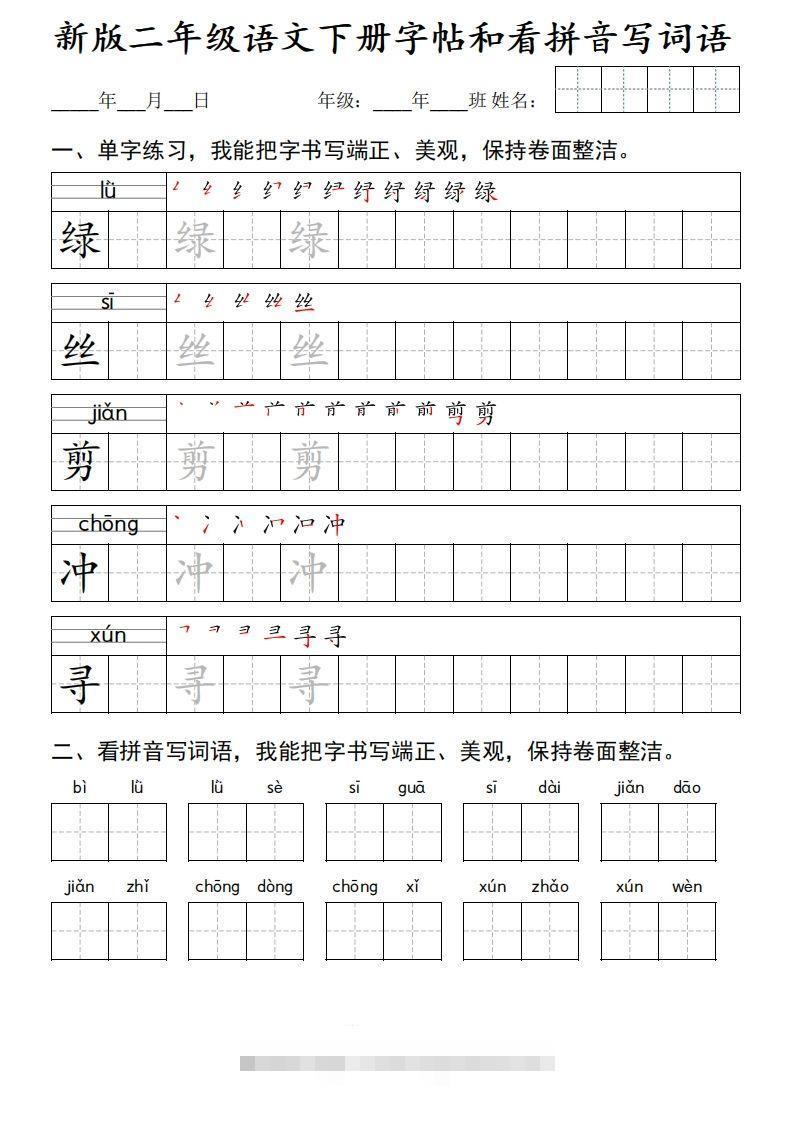 新版二年级语文下册字帖和看拼音写词语
_____年___月___日 年级：____年____班 姓名：
一、单字练习，我能把字书写端正、美观，保持卷面整洁。
lǜ
绿 绿 绿
sī
丝 丝 丝
jiǎn
剪 剪 剪
chōng
冲 冲 冲
xún
寻 寻 寻
二、看拼音写词语，我能把字书写端正、美观，保持卷面整洁。
bì lǜ lǜ sè sī guā sī dài jiǎn dāo
jiǎn zhǐ chōng dòng chōng xǐ xún zhǎo xún wèn